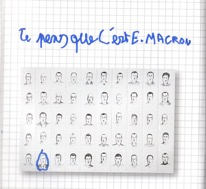 Je pense que c'est E. MACRON